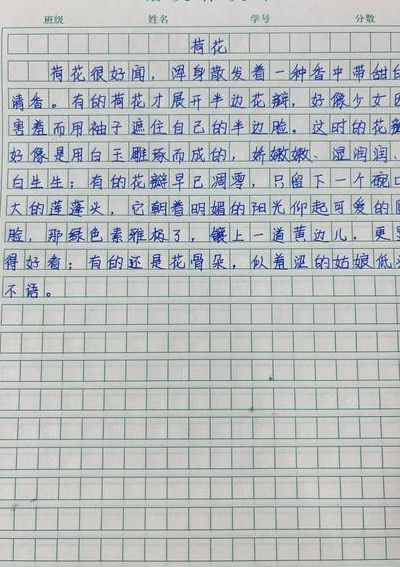 班级 姓名 学号 分数
荷花
荷花很好闻，浑身散发着一种香中带甜的
清香。有的荷花才展开半边花瓣，好像少女因
害羞而用袖子遮住自己的半边脸。这时的花瓣
好像是用白玉雕琢而成的，娇嫩嫩、湿润润、
白生生；有的花瓣早已凋零，只留下一个碗口
大的莲蓬头，它朝着明媚的阳光仰起可爱的圆
脸，那绿色素雅极了，镶上一道黄边儿，更显
得好看；有的还是花骨朵，似羞涩的姑娘低头
不语。